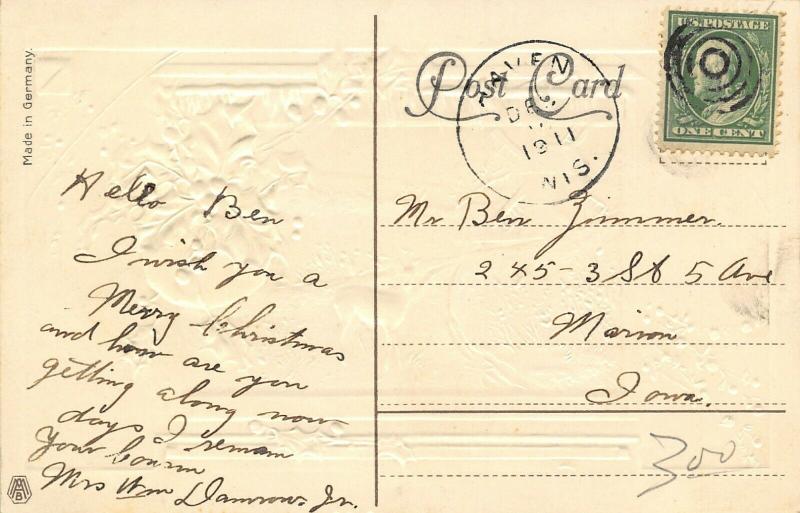 Made in Germany.
Post Card
U.S. POSTAGE
ONE CENT
RAVEN
DE
1911
WIS.
Hello Ben
I wish you a
Merry Christmas
and how are you
getting along now
days I remain
Your cousin
Mrs Wm Damrow Jr.
Mr Ben Zimmer.
245-3 St 5 Ave
Marion
Iowa.
300